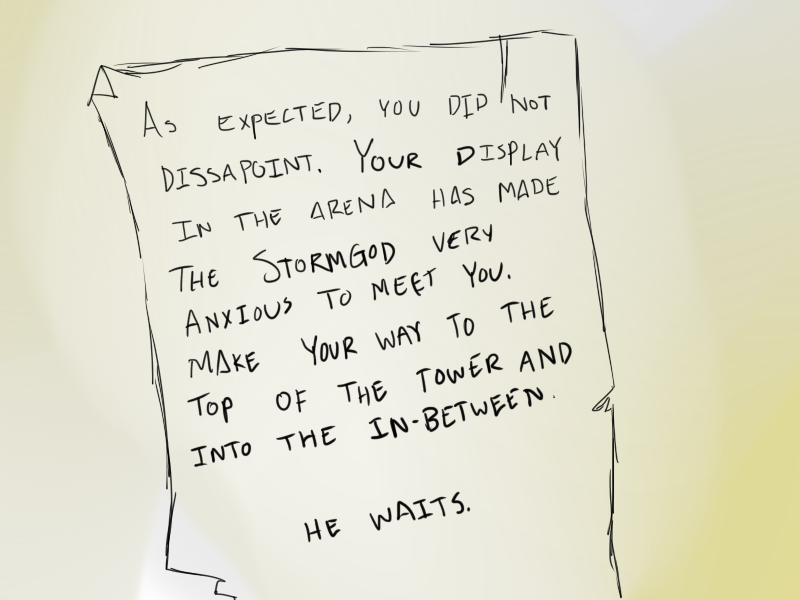 As EXPECTED, YOU DID NOT
DISSAPOINT. YOUR DISPLAY
IN THE ARENA HAS MADE
THE STORMGOD VERY
ANXIOUS TO MEET YOU.
MAKE YOUR WAY TO THE
TOP OF THE TOWER AND
INTO THE IN-BETWEEN.
HE WAITS.